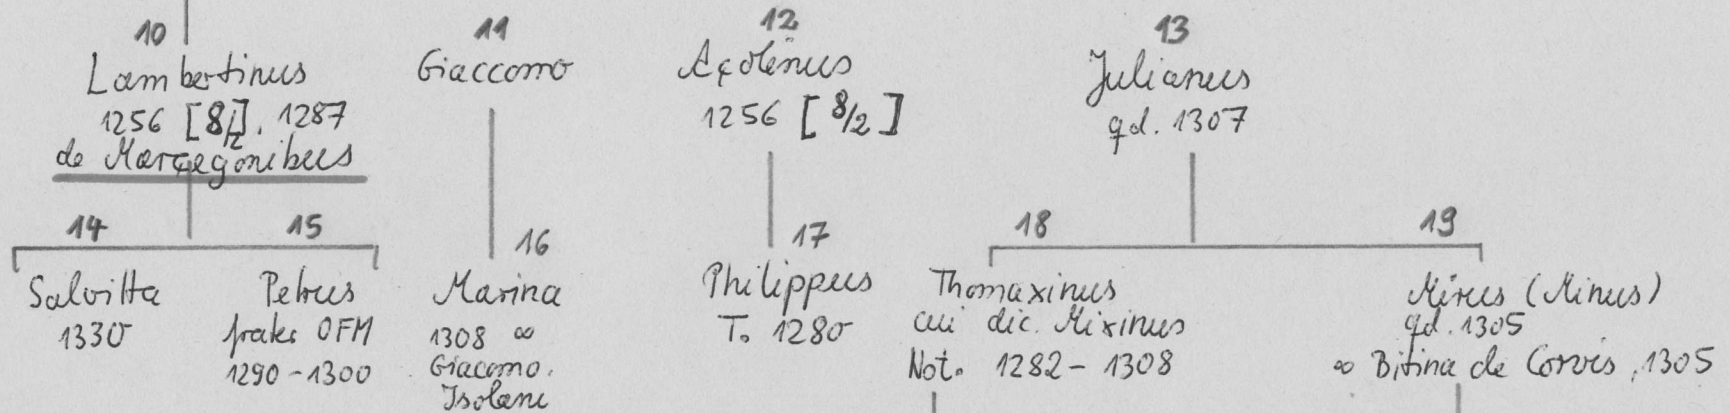 10
Lambertinus
1256 [8/2], 1287
de Marçegonibus
11
Giaccomo
12
Açolinus
1256 [8/2]
13
Julianus
qd. 1307
14
Salvitta
1330
15
Petrus
frater OFM
1290-1300
16
Marina
1308 ∞
Giacomo.
Isolani
17
Philippus
T. 1280
18
Thomaxinus
cui dic. Mixinus
Not. 1282-1308
19
Mixus (Minus)
qd. 1305
∞ Bitina de Corvis, 1305